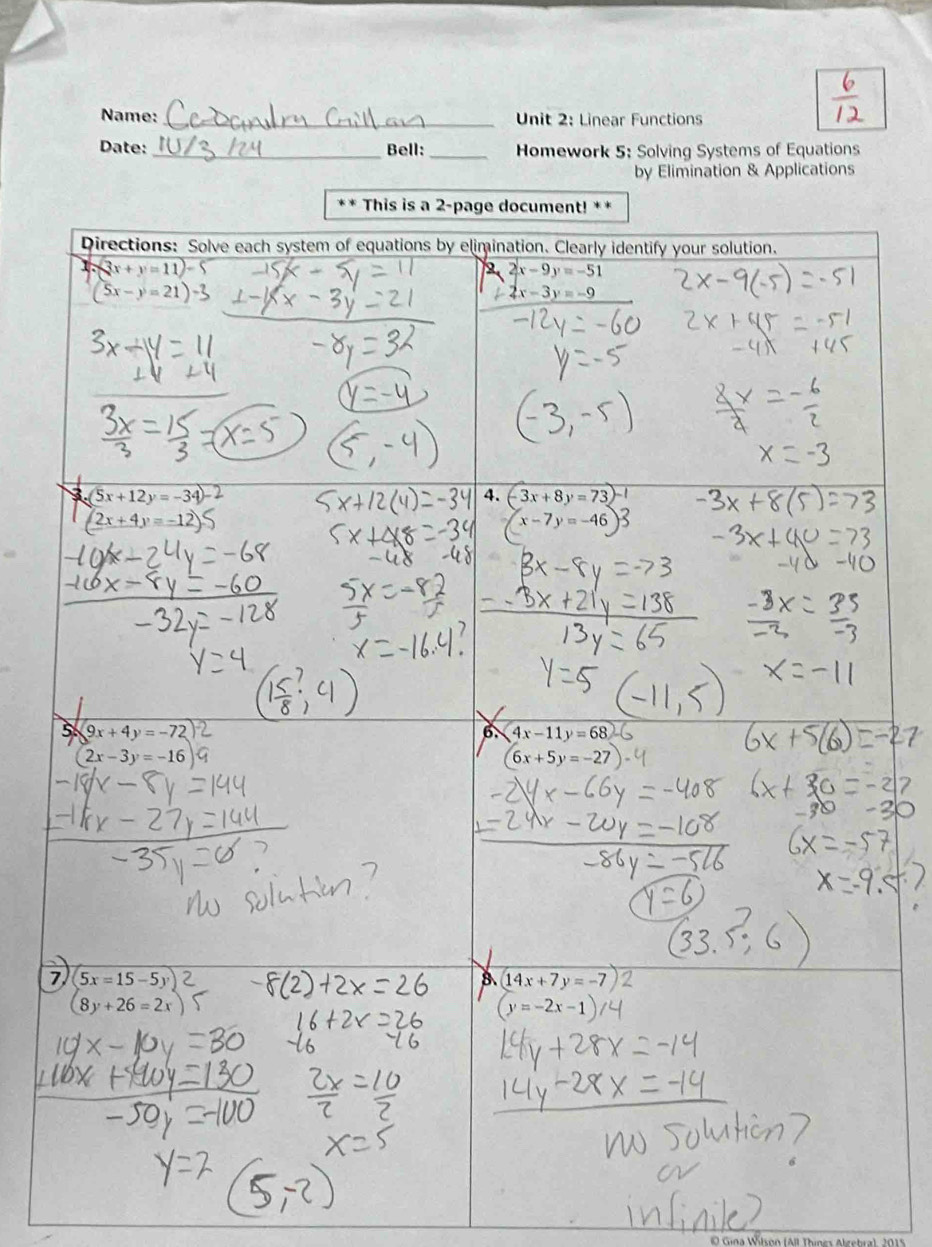 6
12
Name:
Unit 2: Linear Functions
Date: 10/3/24 Bell:
Homework 5: Solving Systems of Equations
by Elimination & Applications
** This is a 2-page document! **
Directions: Solve each system of equations by elimination. Clearly identify your solution.
1. (3x + y = 11)-5
(5x - y = 21)-3
-15x - 5y = 11
-15x - 3y = 21
-8y = 32
y = -4
3x + -4 = 11
+4 +4
3x = 15 = x = 5
3 3
(5, -4)
2. 2x - 9y = -51
2x - 3y = -9
-12y = -60
y = -5
(-3, -5)
2x - 9(-5) = -51
2x + 45 = -51
-45 +45
2x = -6
2 2
x = -3
3. (5x + 12y = -34)-2
(2x + 4y = -12)5
-10x - 24y = -68
-10x - 8y = -60
-32y = -128
y = 4
5x + 12(4) = -34
5x + 48 = -34
-48 -48
5x = -82
5 5
x = -16.4?
(15/8?, 4)
4. (-3x + 8y = 73)-1
(x - 7y = -46)3
3x - 8y = -73
- -3x + 21y = 138
13y = 65
y = 5
(-11, 5)
-3x + 8(5) = 73
-3x + 40 = 73
-40 -40
-3x = 33
-3 -3
x = -11
5. (9x + 4y = -72)-2
(2x - 3y = -16)9
-18x - 8y = 144
-18x - 27y = 144
-35y = 0?
no solution?
6. (4x - 11y = 68)-6
(6x + 5y = -27)-4
-24x - 66y = -408
-24x - 20y = -108
-86y = -516
y = 6
6x + 5(6) = -27
6x + 30 = -27
-30 -30
6x = -57
x = -9.5?
(33.5?, 6)
7. (5x = 15 - 5y)2
(8y + 26 = 2x)5
10x - 10y = 30
10x + 40y = 130
-50y = -100
y = 2
-8(2) + 2x = 26
16 + 2x = 26
-16 -16
2x = 10
2 2
x = 5
(5, -2)
8. (14x + 7y = -7)2
(y = -2x - 1)14
14y + 28x = -14
14y - 28x = -14
no solution?
or
infinite?
© Gina Wilson (All Things Algebra), 2015